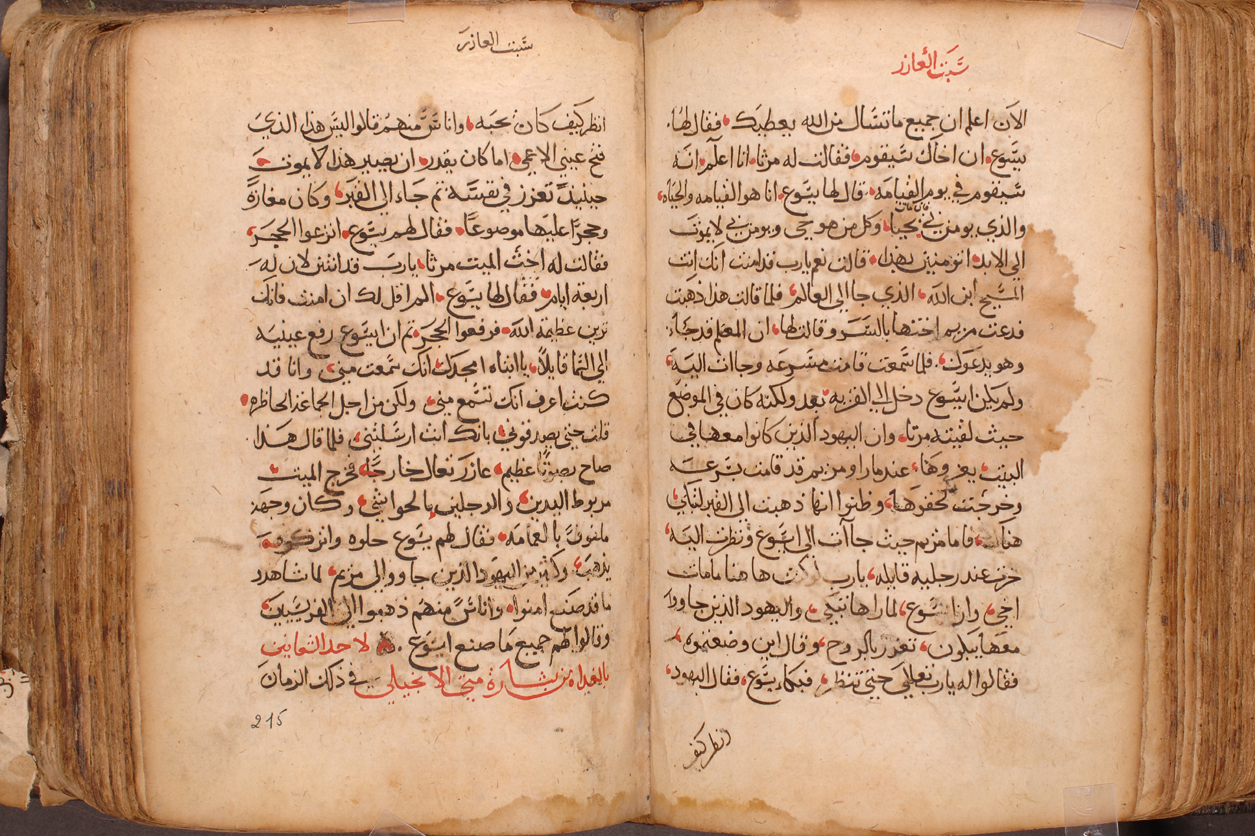 سبت العازر
الآن اعلم ان جميع ما تسال من الله يعطيك فقال لها
يسوع ان اخاك سيقوم فقالت له مرثا انا اعلم انه
سيقوم في يوم القيامه قال لها يسوع انا هو القيامه والحياه
والذي يومن بي يحيا وكل من هو حي ويومن بي لا يموت
الي الابد اتومنين بهذا قالت نعم يارب قد امنت انك انت
المسيح ابن الله الذي جا الي العالم فلما قالت هذا ذهبت
فدعت مريم اختها بالسر وقالت لها ان المعلم قد جاء
وهو يدعوك فلما سمعت قامت مسرعه وجاات اليه
ولم يكن ايسوع دخل الي القريه بعد ولكنه كان في الموضع
حيث لقيته مرثا وان اليهود الذين كانوا معها في
البيت يعزوها عند ما راو مريم قد قامت بسرعه
وخرجت لحقوها وظنوا انها ذهبت الي القبر لتبكي
هناك فاما مريم حيث جاات الي ايسوع ونظرت اليه
خرت عند رجليه قايله يارب لو كنت هاهنا ما مات
اخي وان ايسوع لما راها تبكي واليهود الذين جاوا
معها يبكون تعزز بالروح وقال اين وضعتموه
فقالوا له يارب تعالي حتي تنظر فبكاء يسوع فقال اليهود
انظر كيف
سبت العازر
انظر كيف كان يحبه واناس منهم قالوا اليس هذا الذي
فتح عيني الاعمي اما كان يقدر ان يصير هذا لا يموت
حينيذ تعزز في نفسه ثم جاء الي القبر وكان مغارة
وحجرا عليها موضوعا فقال لهم يسوع انزعوا الحجر
فقالت له اخت الميت مرثا يارب قد انتن لان له
اربعة ايام فقال لها يسوع الم اقل لك ان امنت فانك
ترين عظمة الله فرفعوا الحجر ثم ان ايسوع رفع عينيه
الي السما قايلا يا ابتاه امجدك انك سمعت مني وانا قد
كنت اعرف انك تسمع مني ولكن من اجل الجماعه الحاظره
قلت حتي يصدقوني بانك انت ارسلتني فلما قال هذا
صاح بصوت عظيم عازر تعال خارجا فخرج الميت
مربوط اليدين والرجلين بالحواشي وكان وجهه
ملفوف بالعمامه فقال لهم يسوع حلوه واتركوه
يذهب وكثير من اليهود الذين جاووا الي مريم لما شاهدو
ما قد صنع امنوا واناس منهم ذهبوا الي الفريسيين
وقالوا لهم جميع ما صنع ايسوع لاحد الشعانين
بالغداه من بشارة متي الانجيلي في ذلك الزمان
215